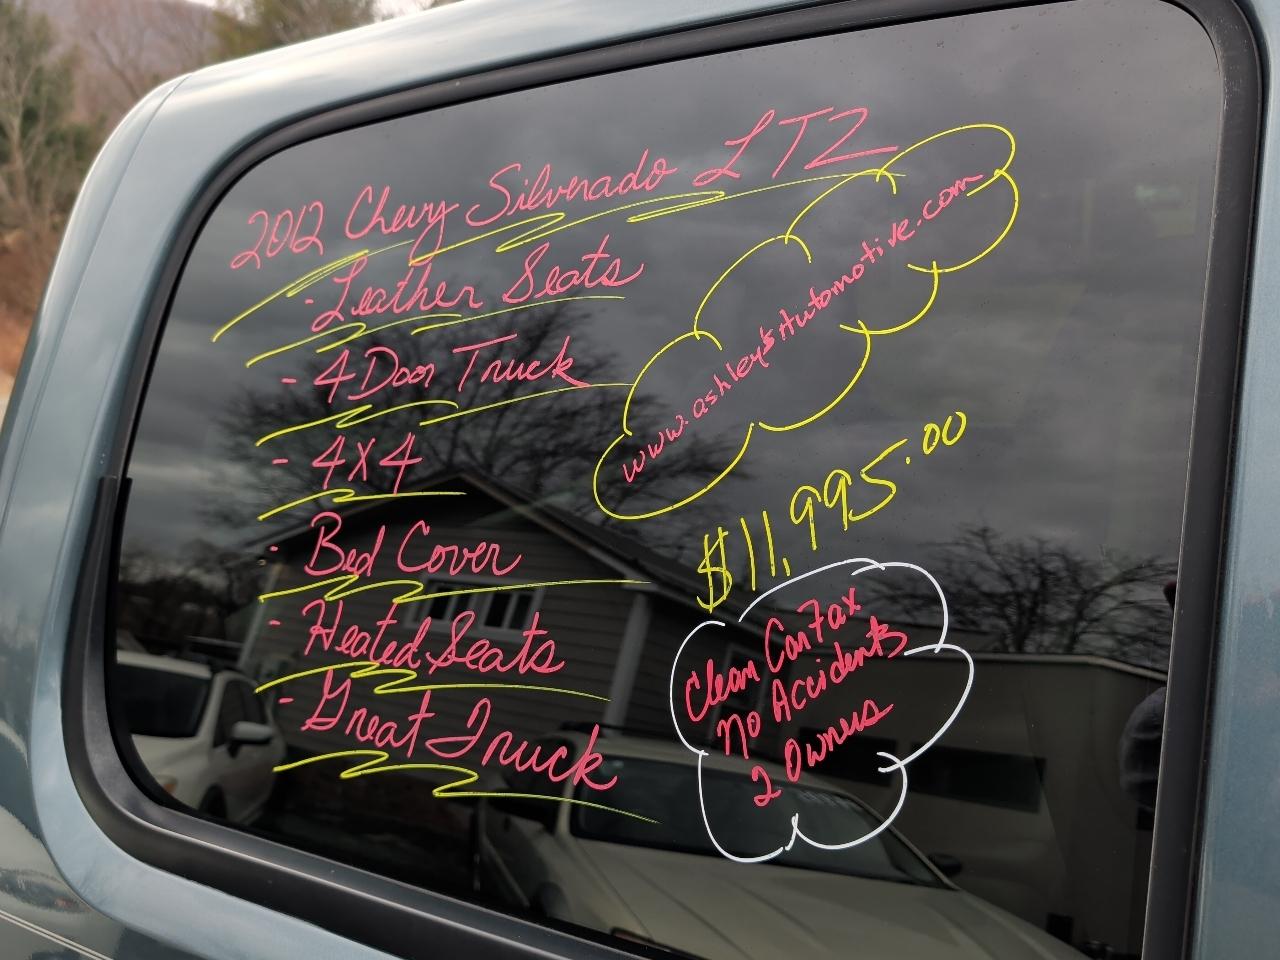 2012 Chevy Silverado LTZ
- Leather Seats
- 4 Door Truck
- 4x4
- Bed Cover
- Heated Seats
- Great Truck
www.ashley'sAutomotive.com
$11,995.00
Clean CarFax
No Accidents
2 Owners